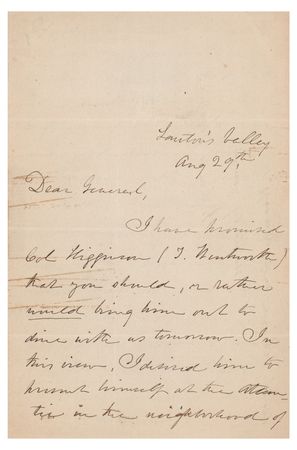 Lawton's Valley
Aug 29th.
Dear General,
I have promised
Col Higginson (T. Wentworth)
that you should, or rather
would bring him out to
dine with us tomorrow. In
this view, I desired him to
present himself at the
in the neighborhood of